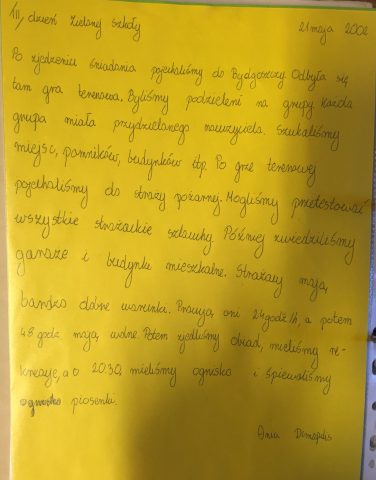 III, dzień zielonej szkoły 21 maja 2002
Po zjedzeniu śniadania pojechaliśmy do Bydgoszczy. Odbyła się
tam gra terenowa. Byliśmy podzieleni na grupy. Każda
grupa miała przydzielonego nauczyciela. Szukaliśmy
miejsc, pomników, budynków itp. Po grze terenowej
pojechaliśmy do straży pożarnej. Mogliśmy przetestować
wszystkie strażackie szlauchy. Później zwiedziliśmy
garaże i budynki mieszkalne. Strażacy mają,
bardzo dobre warunki. Pracują oni 24godź/h, a potem
48 godz mają wolne. Potem zjedliśmy obiad, mieliśmy re-
kreację, a o 20.30 mieliśmy ognisko i śpiewaliśmy
piosenki.
Ania